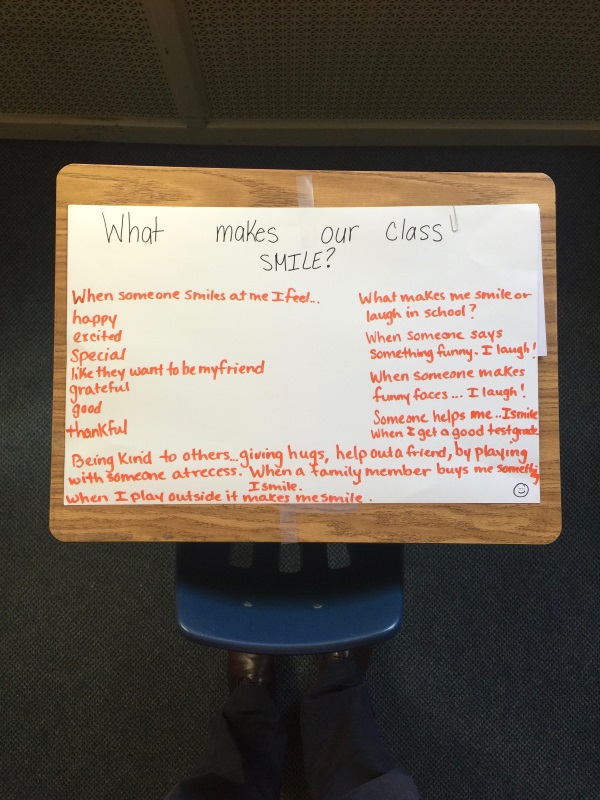 What makes our class
SMILE?
When someone smiles at me I feel...
happy
excited
special
like they want to be my friend
grateful
good
thankful
What makes me smile or
laugh in school?
When someone says
something funny. I laugh!
When someone makes
funny faces... I laugh!
Someone helps me.. I smile
When I get a good test grade
Being kind to others...giving hugs, help out a friend, by playing
with someone at recess. When a family member buys me something
I smile.
when I play outside it makes me smile.